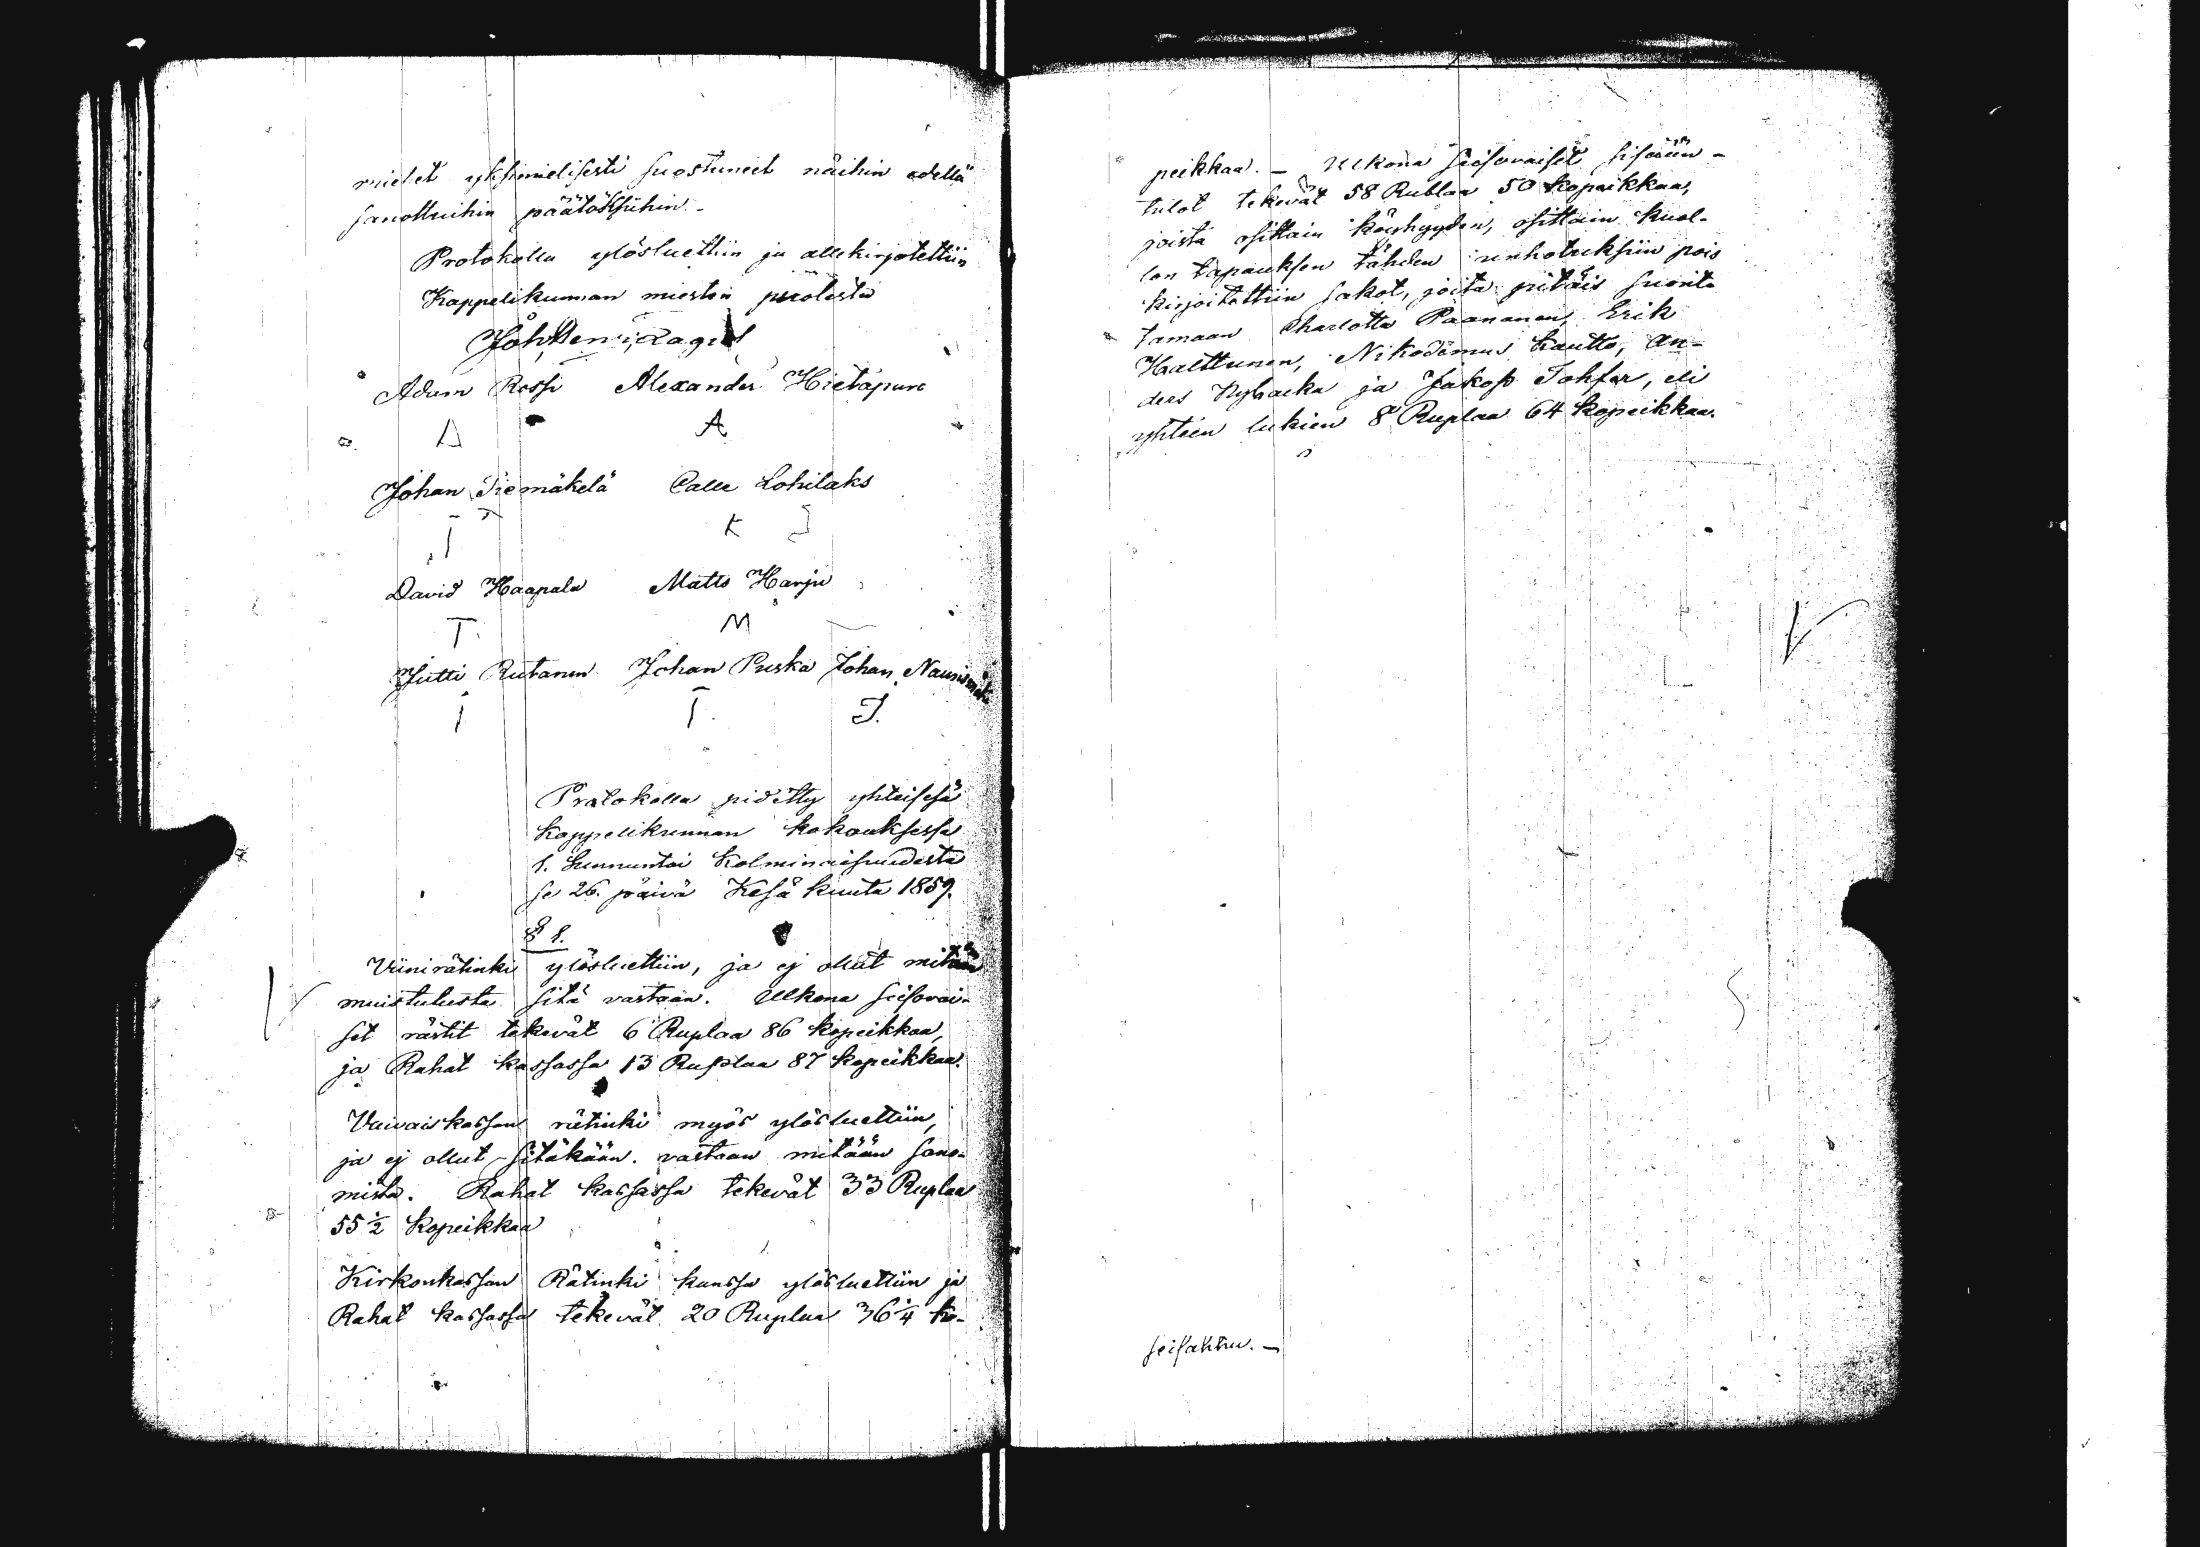 miehet yksimielisesti suostuneet näihin edellä
sanottuihin päätöksihin.-
Protokolla ylösluettiin ja allekirjotettiin
Kappelikunnan miesten puolesta
Joh. Henr.
Adam Rossi Alexander Hietapuro
A A
Johan Piemäkelä Calle Lohilaks
J K J
David Haapala Matts Harju
T M
Jutti Rutanen Johan Puska Johan
I I J.
Protokolla pidetty yhteisesä
kappelikunnan kokouksessa
1. Sunnuntai Kolminaisuudesta
se 26. päivä Kesä kuuta 1859.
§ 1.
Viinirätinki ylösluettiin, ja ej ollut mitään
muistutusta sitä vastaan. Ulkona seisovai-
set rästit tekevät 6 Ruplaa 86 kopeikkaa,
ja Rahat kassassa 13 Ruplaa 87 kopeikkaa.
Vaivaiskassan rätinki myös ylösluettiin,
ja ej ollut sitäkään vastaan mitään sano-
mista. Rahat kassassa tekevät 33 Ruplaa
55 1/2 kopeikkaa
Kirkonkassan Rätinki kanssa ylösluettiin ja
Rahat kassassa tekevät 20 Ruplaa 36 1/4 ko-
peikkaa. - Ulkona seisovaiset sisään-
tulot tekevät 58 Rublaa 50 kopeikkaa,
joista osittain köyhyyden, osittain kuol-
lon tapauksen tähden unhotuksiin pois
kirjoitettiin sakot, joita pitäis suorit-
tamaan Charlotta Paananen, Erik
Haalttunen, Nikodemus Kautto, An-
ders Nybacka ja Jakop Tohfer, eli
yhteen lukien 8 Ruplaa 64 kopeikkaa.
seisahtuu. -